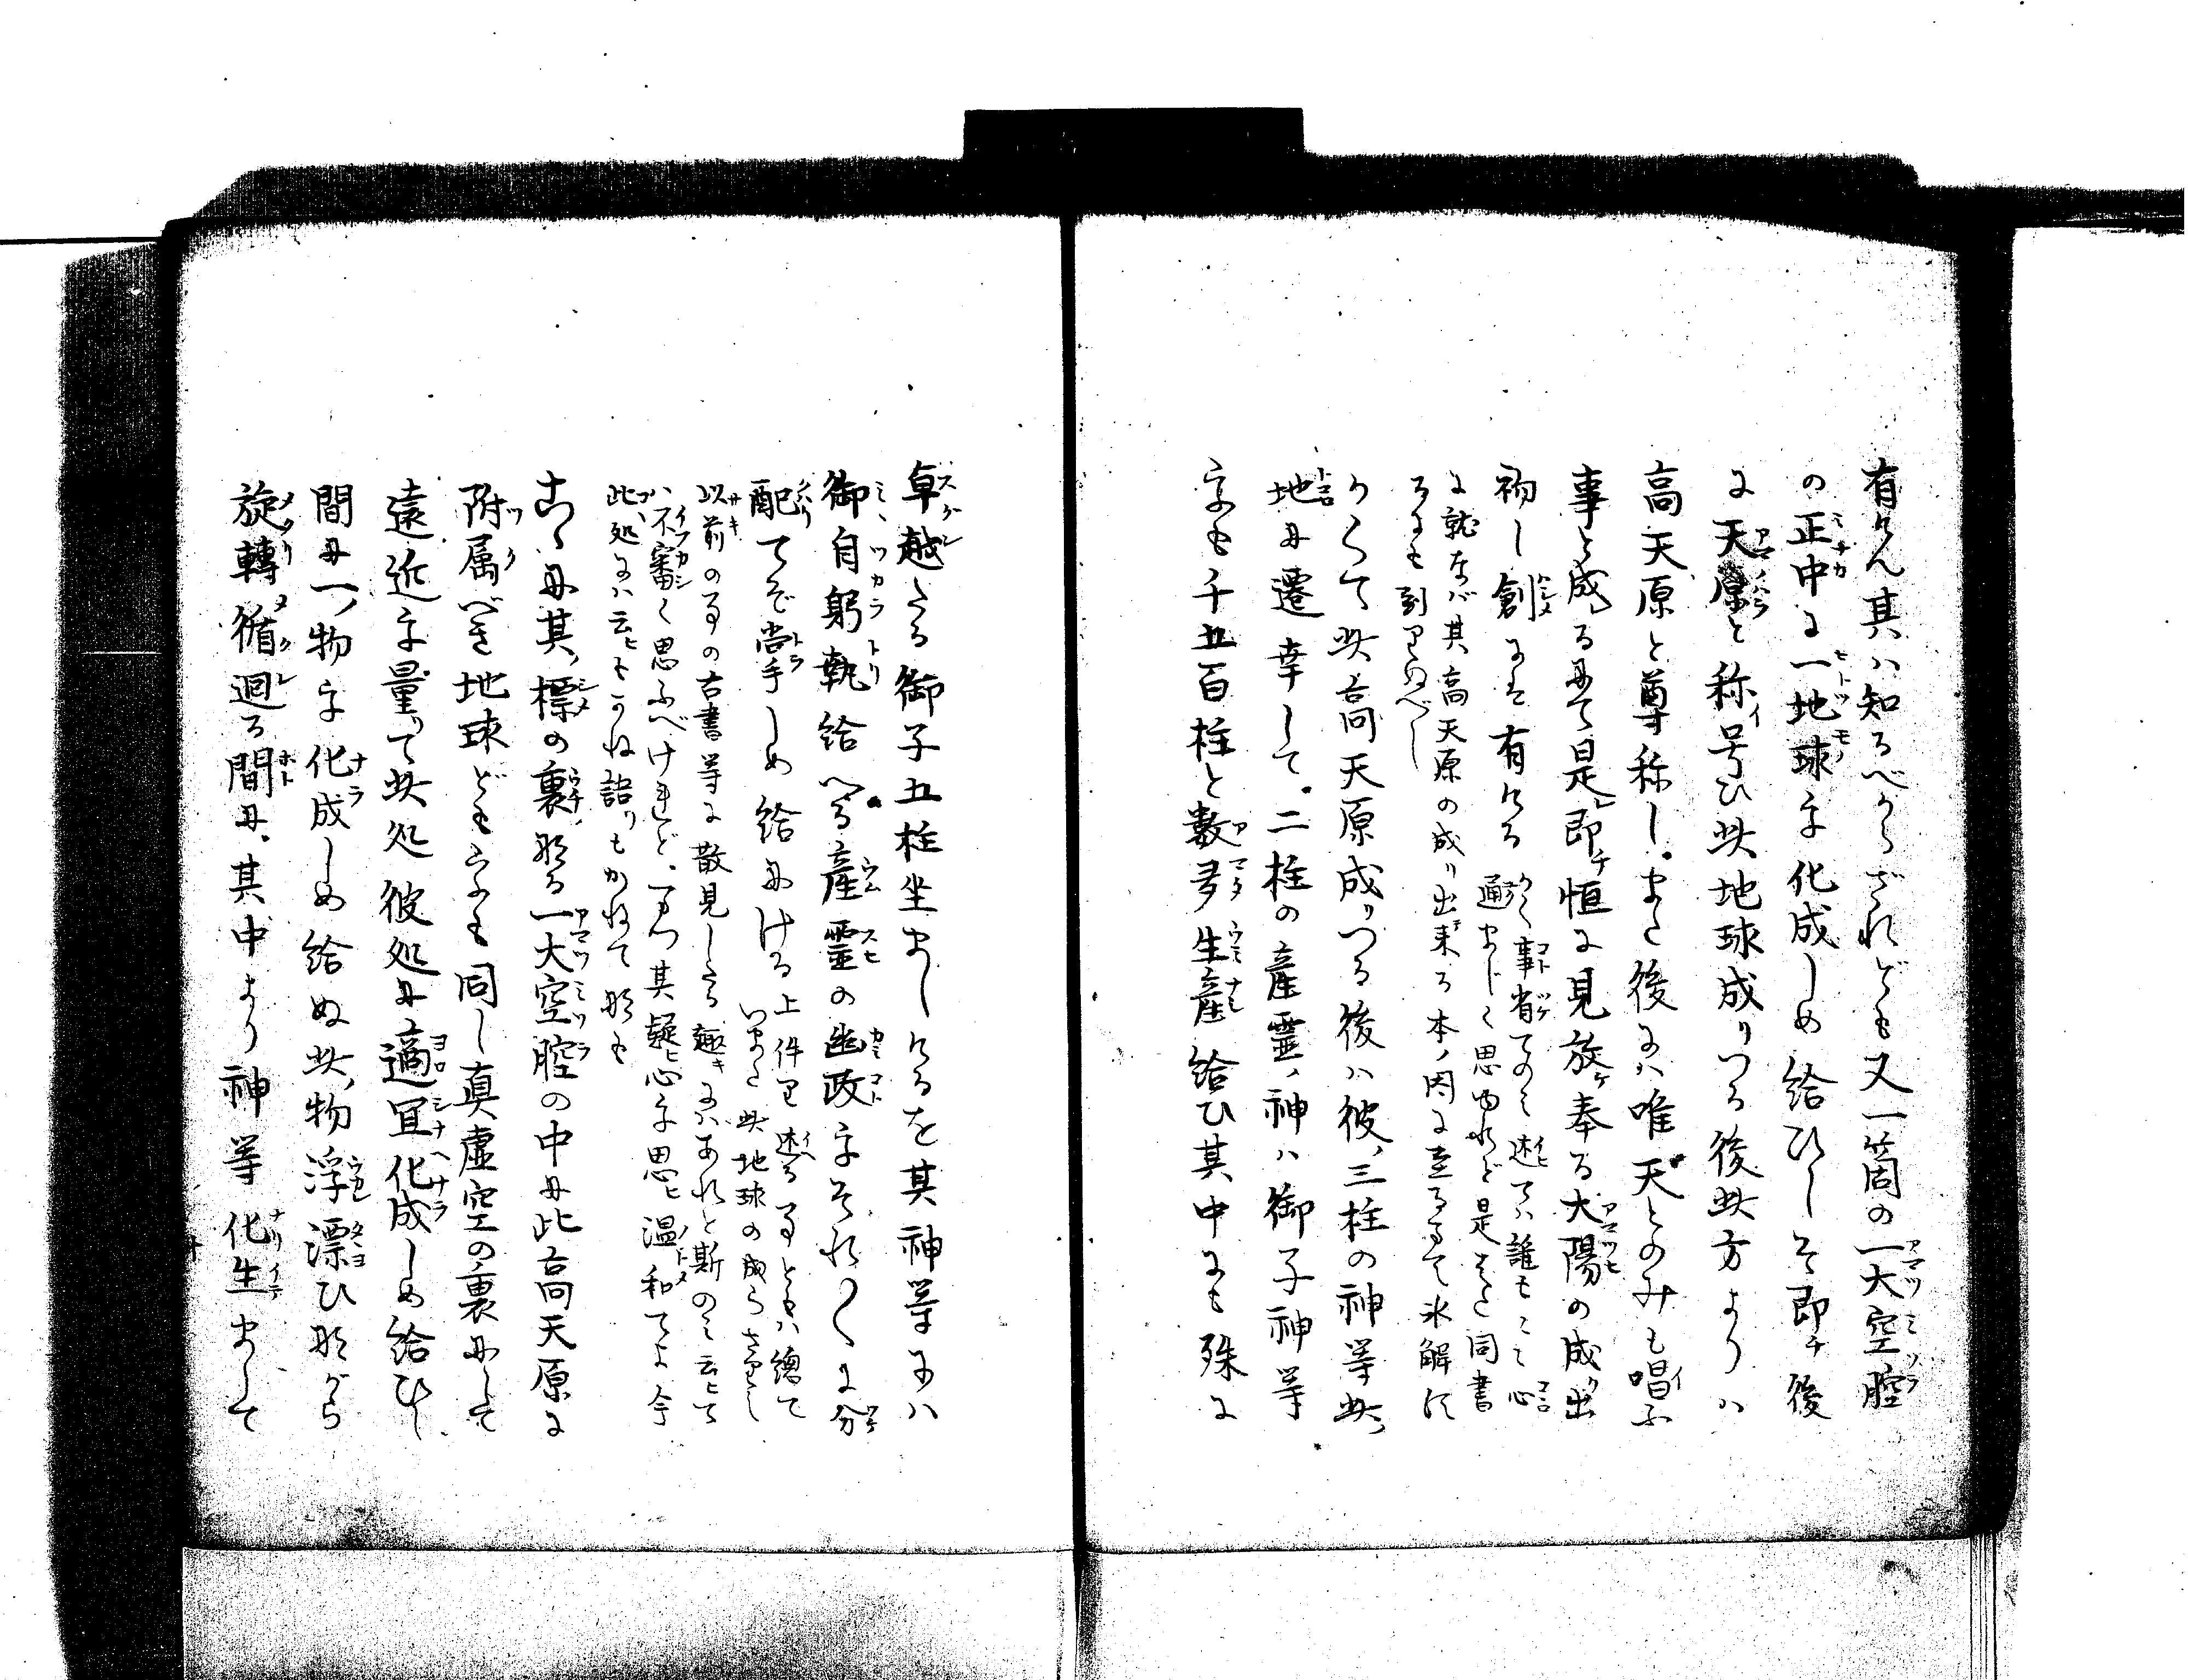 有けん其ハ知るべからざれども又一箇の一大空腔
の正中に一地球を化成しめ給ひしそ即チ後
に天原と称号ひ此地球成りつる後此方よりハ
高天原と尊称しまた後にハ唯天とのみも唱ふ
事と成るにて是レ即チ恒に見放ケ奉る大陽の成リ出
初し創にそ有ける
通ましく思ゆれど是はた同書
に就なバ其高天原の成リ出来る本ノ因に至るまて氷解て
るにも到りぬべし
かくて此高天原成りつる後ハ彼ノ三柱の神等此ノ
地に遷幸して二柱の産霊ノ神ハ御子神等
をも千五百柱と数多生産給ひ其中にも殊に
卓越たる御子五柱坐ましけるを其神等にハ
御自躬執給へる産霊の幽政をそれ〳〵に分
配てぞ掌しめ給にける
上件り述る事ともハ總て
いまた此地球の成らさりし
以前の事の古書等に散見したる趣キにハあれと斯のミ云ヒて
ハ不審く思ふべけれど其疑ヒ心を思ヒ温和てよ今
此処にハ云ヒもかね語リもかねて那も
爰に其ノ標の裏那る一大空腔の中に此高天原に
附属べき地球どもをも同し真虚空の裏にして
遠近を量りて此処彼処に適宜化成しめ給ひし
間に一ノ物を化成しめ給ぬ此ノ物浮漂ひ那がら
旋轉循廻る間に其中より神等化生まして